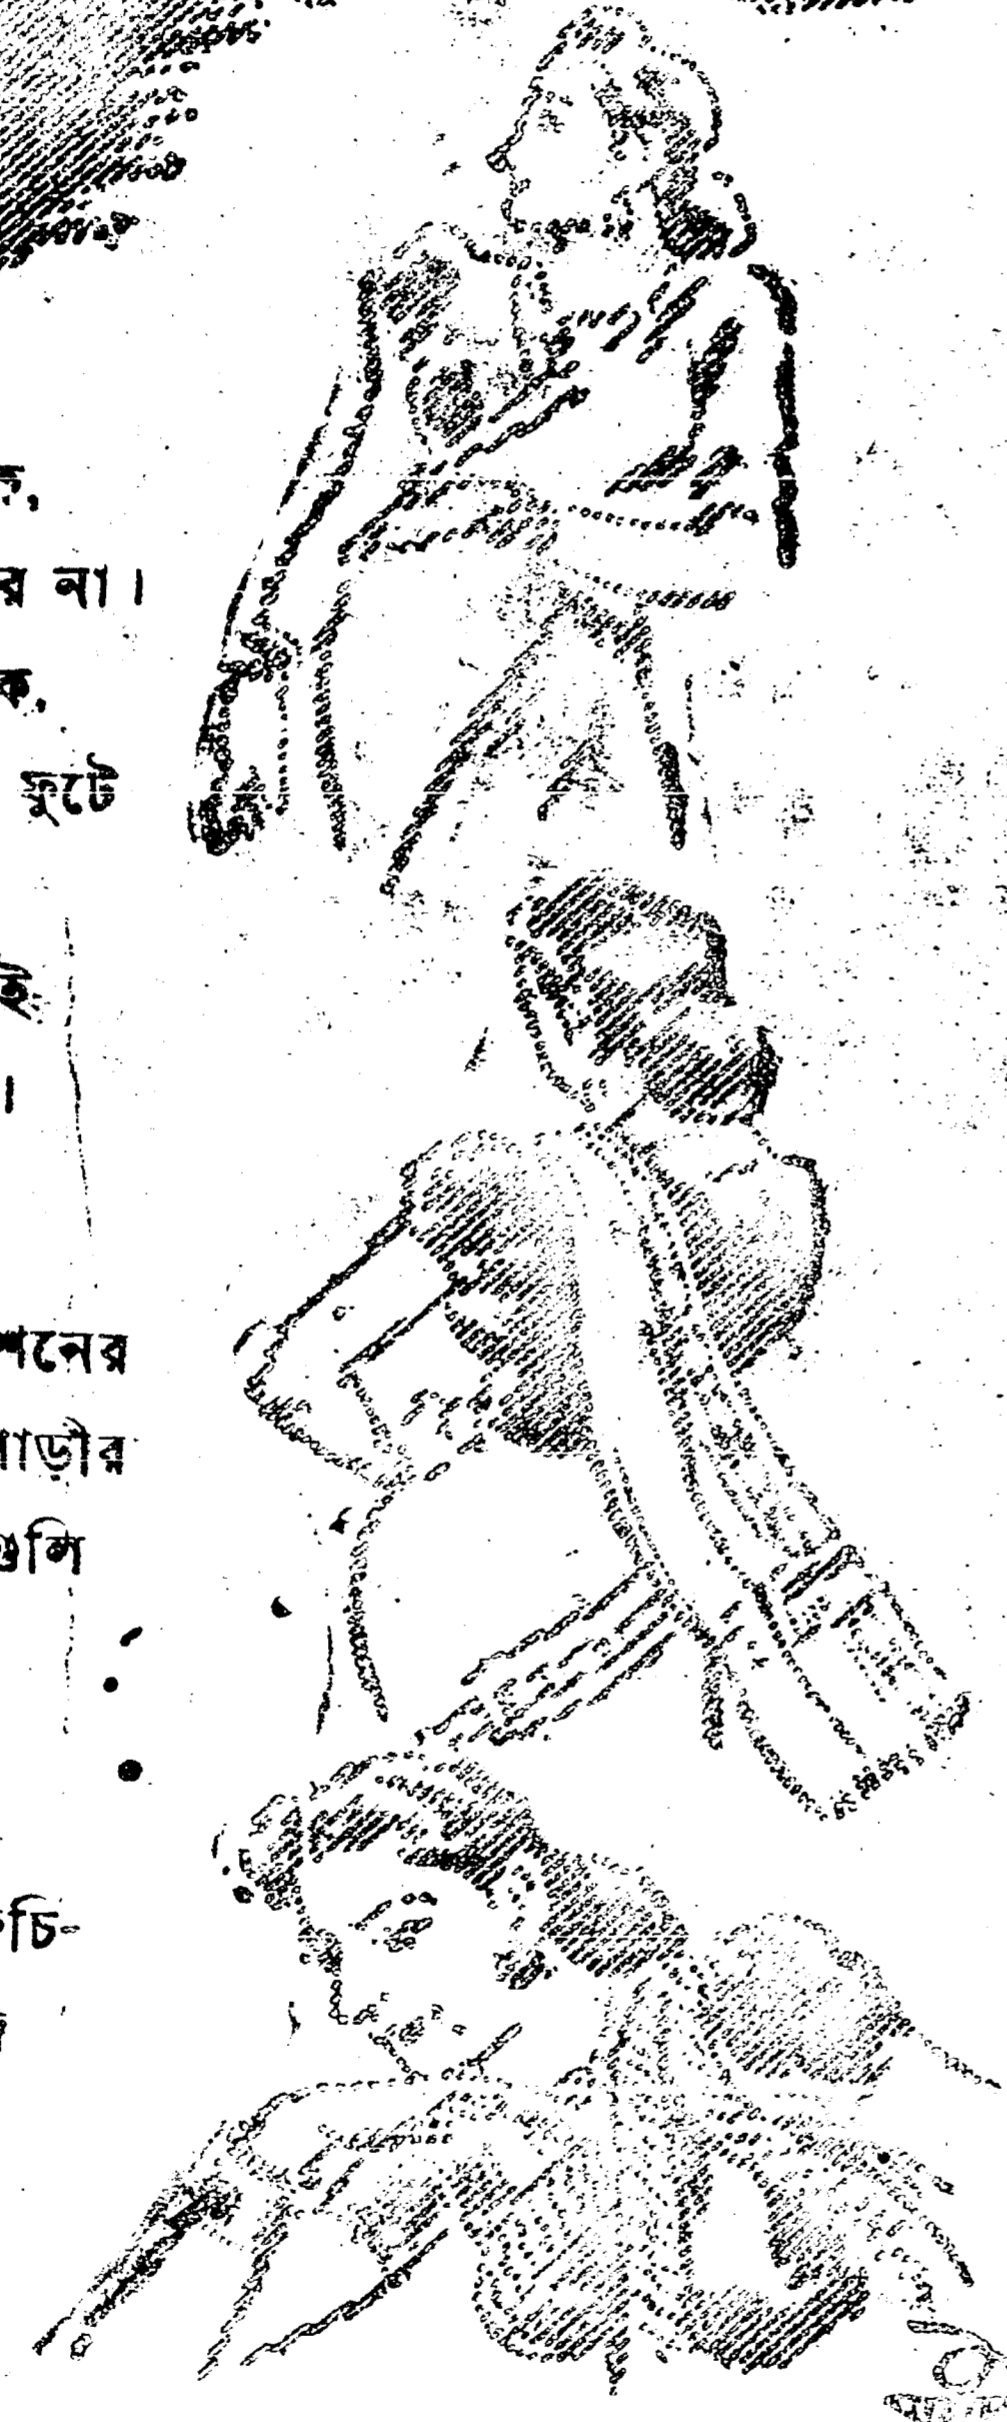 ক,
র না।
ক,
ফুটে
ই
।
শনের
াড়ীর
গুলি
চি-